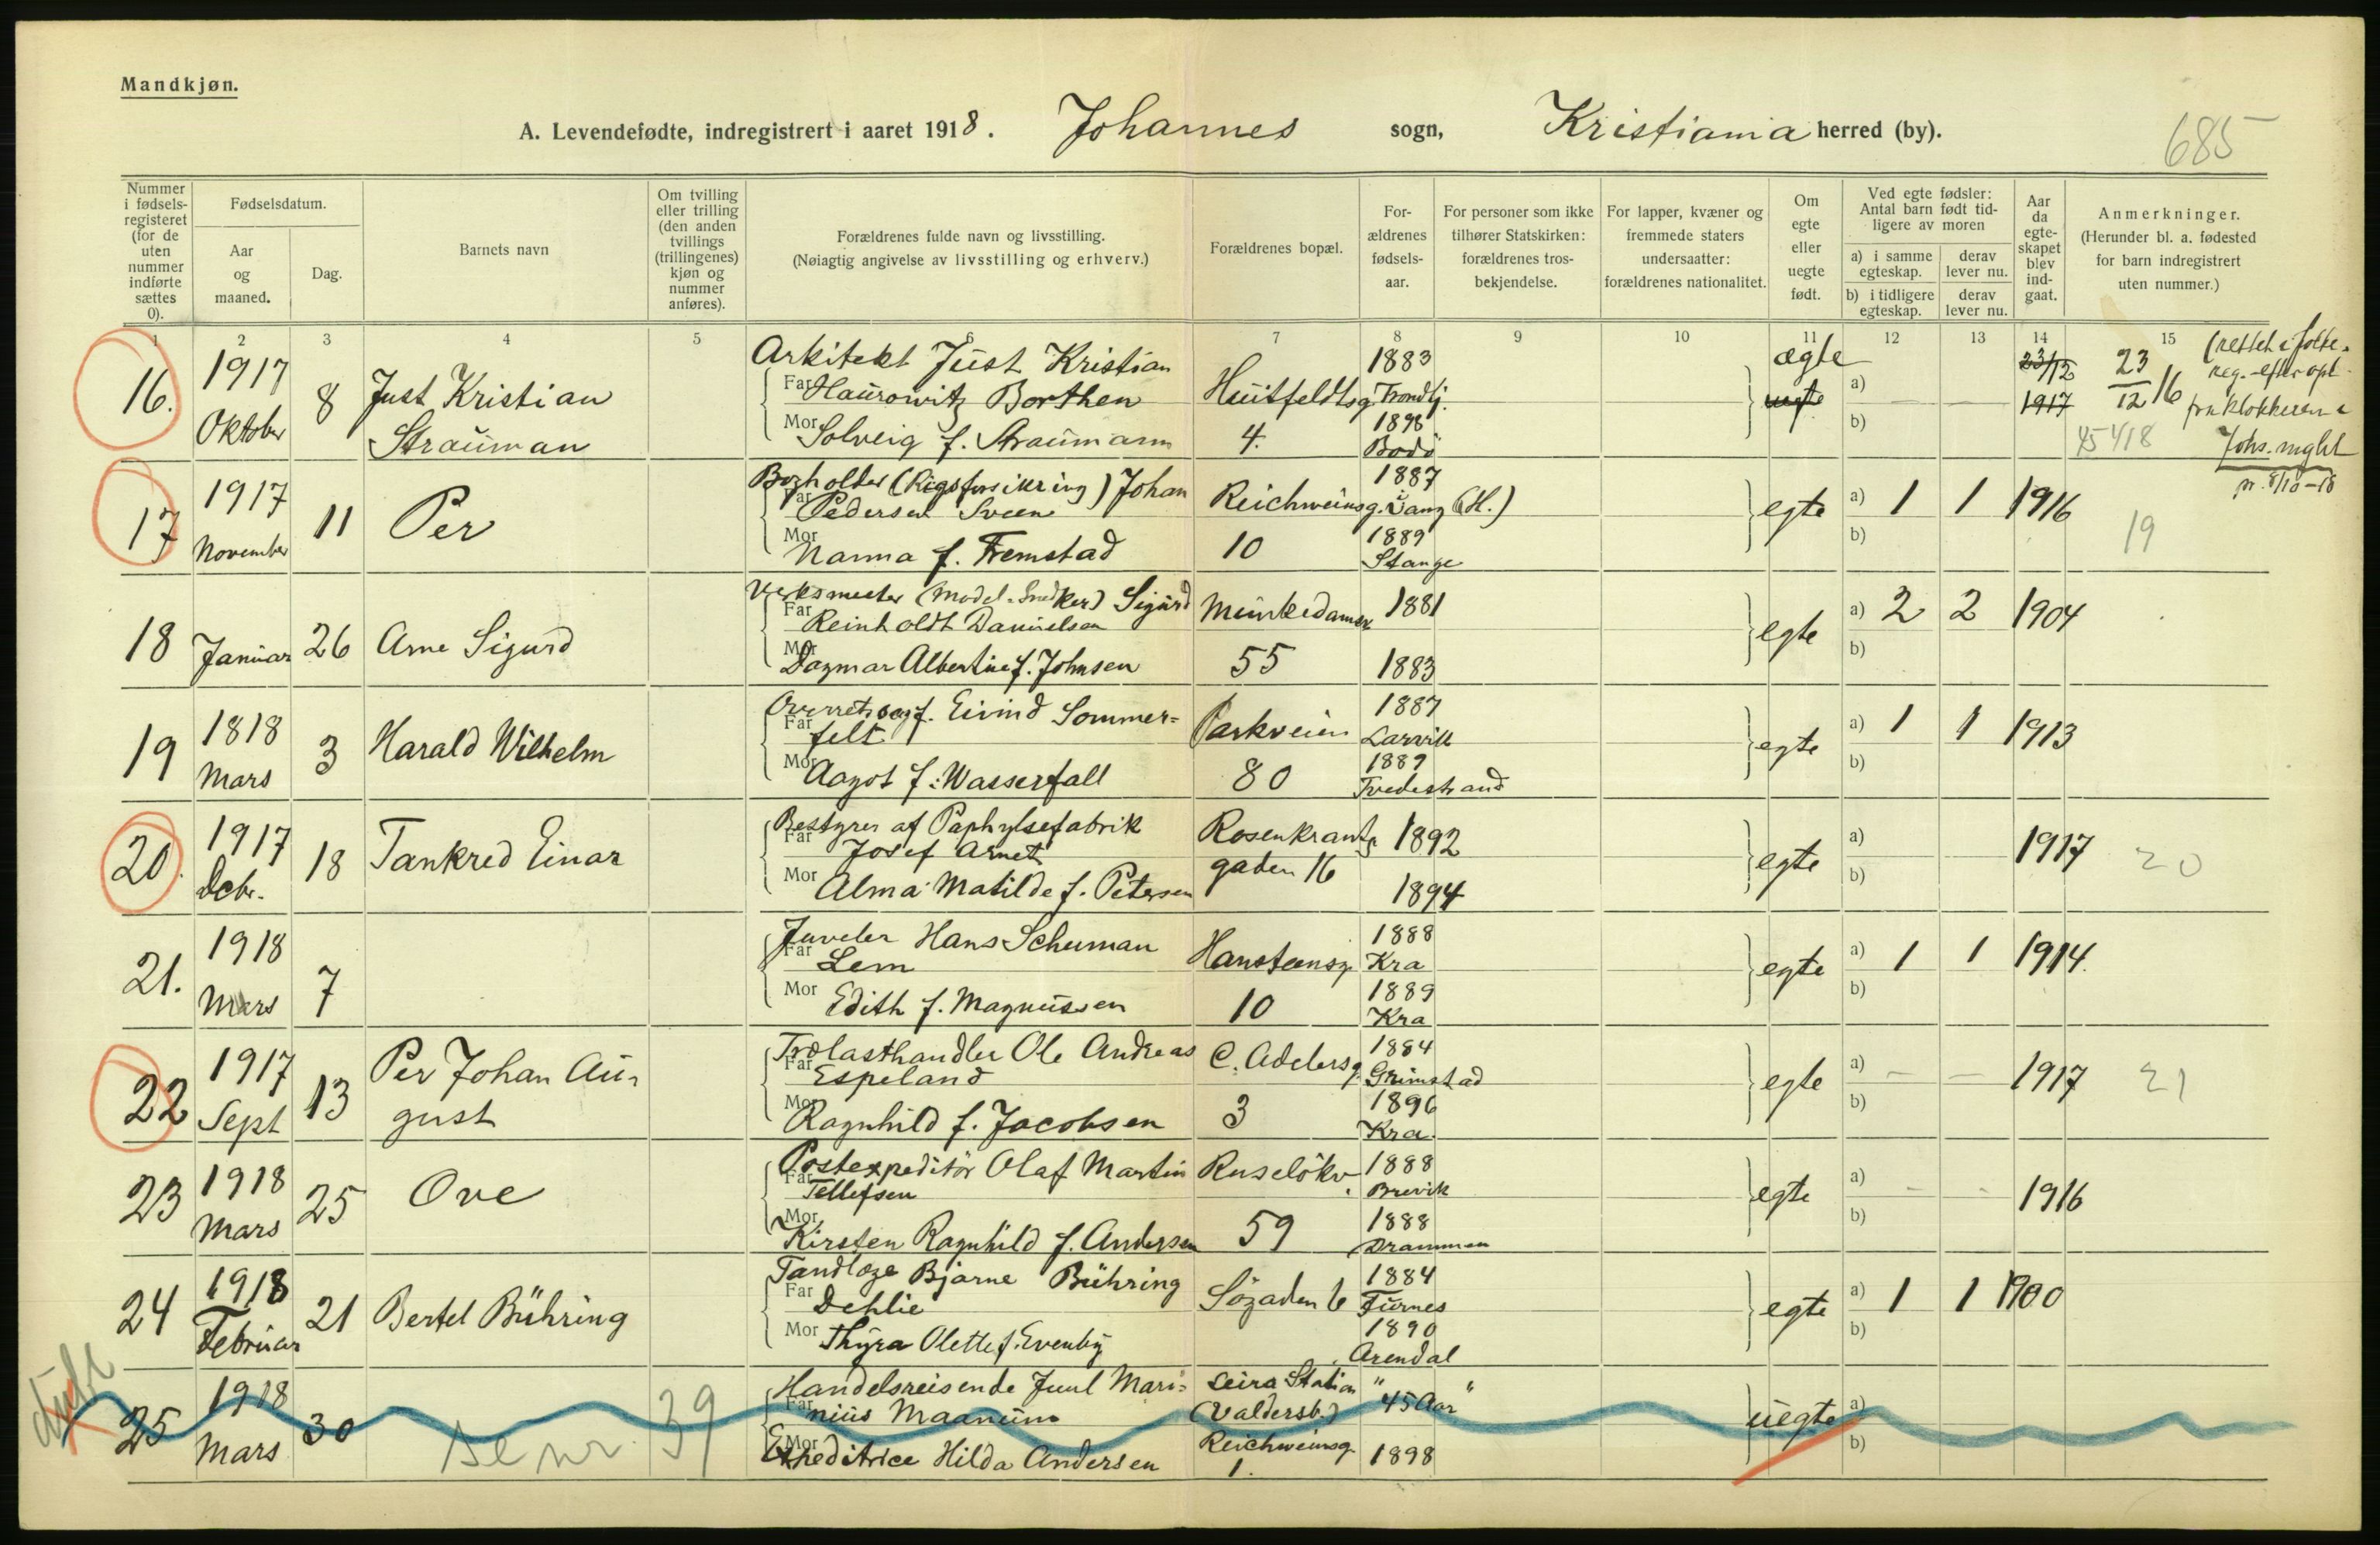 Mandkjøn.
A. Levendefødte, indregistrert i aaret 1918. Johannes sogn, Kristiania herred (by).
685
Nummer i fødsels-registeret (for de uten nummer indførte sættes 0).
Fødselsdatum.
Aar og maaned.
Dag.
Barnets navn
Om tvilling eller trilling (den anden tvillings (trillingenes) kjøn og nummer anføres).
Forældrenes fulde navn og livsstilling.
(Nøiagtig angivelse av livsstilling og erhverv.)
Forældrenes bopæl.
For-ældrenes fødsels-aar.
For personer som ikke tilhører Statskirken: forældrenes tros-bekjendelse.
For lapper, kvæner og fremmede staters undersaatter: forældrenes nationalitet.
Om egte eller uegte født.
Ved egte fødsler: Antal barn født tid-ligere av moren
a) i samme egteskap.
derav lever nu.
b) i tidligere egteskap.
derav lever nu.
Aar da egte-skapet blev ind-gaat.
Anmerkninger.
(Herunder bl. a. fødested for barn indregistrert uten nummer.)
1 2 3 4 5 6 7 8 9 10 11 12 13 14 15
16. 1917 Oktober 8 Just Kristian Strauman
Arkitekt Just Kristian
Far Haurowitz Borthen
Mor Solveig f. Straumann
Huitfeldtsg. 4.
1883 Trondhj.
1898 Bodö
ægte uegte
a) — —
b)
23/12 1917
23/12 16
45418
(rettet i folke-
reg. efter opl.
fra klokkeren i
Johs. mght
pr. 8/10-18
17 1917 November 11 Per
Bogholder (Rigsforsikring) Johan
Far Pedersen Sveen
Mor Nanna f. Fremstad
Reichweinsg. 10
1887 Vang (H.)
1889 Stange
egte
a) 1 1 1916
b)
19
18 Januar 26 Arne Sigurd
Verksmester (Model-Snedker) Sigurd
Far Reinholdt Danielsen
Mor Dagmar Albertine f. Johnsen
Munkedamsv 55
1881
1883
egte
a) 2 2 1904
b)
19 1818 Mars 3 Harald Wilhelm
Overretssagf. Eivind Sommer=
Far felt
Mor Aagot f. Wasserfall
Parkveien 80
1887 Larvik
1889 Tvedestrand
egte
a) 1 1 1913
b)
20. 1917 Decbr. 18 Tankred Einar
Bestyrer af Paphylsefabrik
Far Josef Arnet
Mor Alma Matilde f. Petersen
Rosenkrantz gaden 16
1892
1894
egte
a)
b)
1917
20
21. 1918 Mars 7
Juveler Hans Schuman
Far Lem
Mor Edith f. Magnussen
Hansteensg. 10
1888 Kra
1889 Kra
egte
a) 1 1 1914.
b)
22 1917 Sept 13 Per Johan Au-
gust
Trælasthandler Ole Andreas
Far Espeland
Mor Ragnhild f. Jacobsen
C. Adelersg. 3
1884 Grimstad
1896 Kra.
egte
a) — — 1917
b)
21
23 1918 Mars 25 Ove
Postexpeditör Olaf Martin
Far Tellefsen
Mor Kirsten Ragnhild f. Andersen
Ruselökv. 59
1888 Brevik
1888 Drammen
egte
a) - - 1916
b)
24 1918 Februar 21 Bertel Bühring
Tandlæge Bjarne Bühring
Far Dehlie
Mor Thyra Olette f. Evenby
Sögaden 6
1884 Furnes
1890 Arendal
egte
a) 1 1 1900
b)
25 1918 Mars 30 se nr. 39
Handelsreisende Juul Mari=
Far nius Maanum
Mor Expeditrice Hilda Andersen
Leira Station
(Valdersb.)
Reichweinsg. 1.
" 45 Aar "
1898
uegte
a)
b)